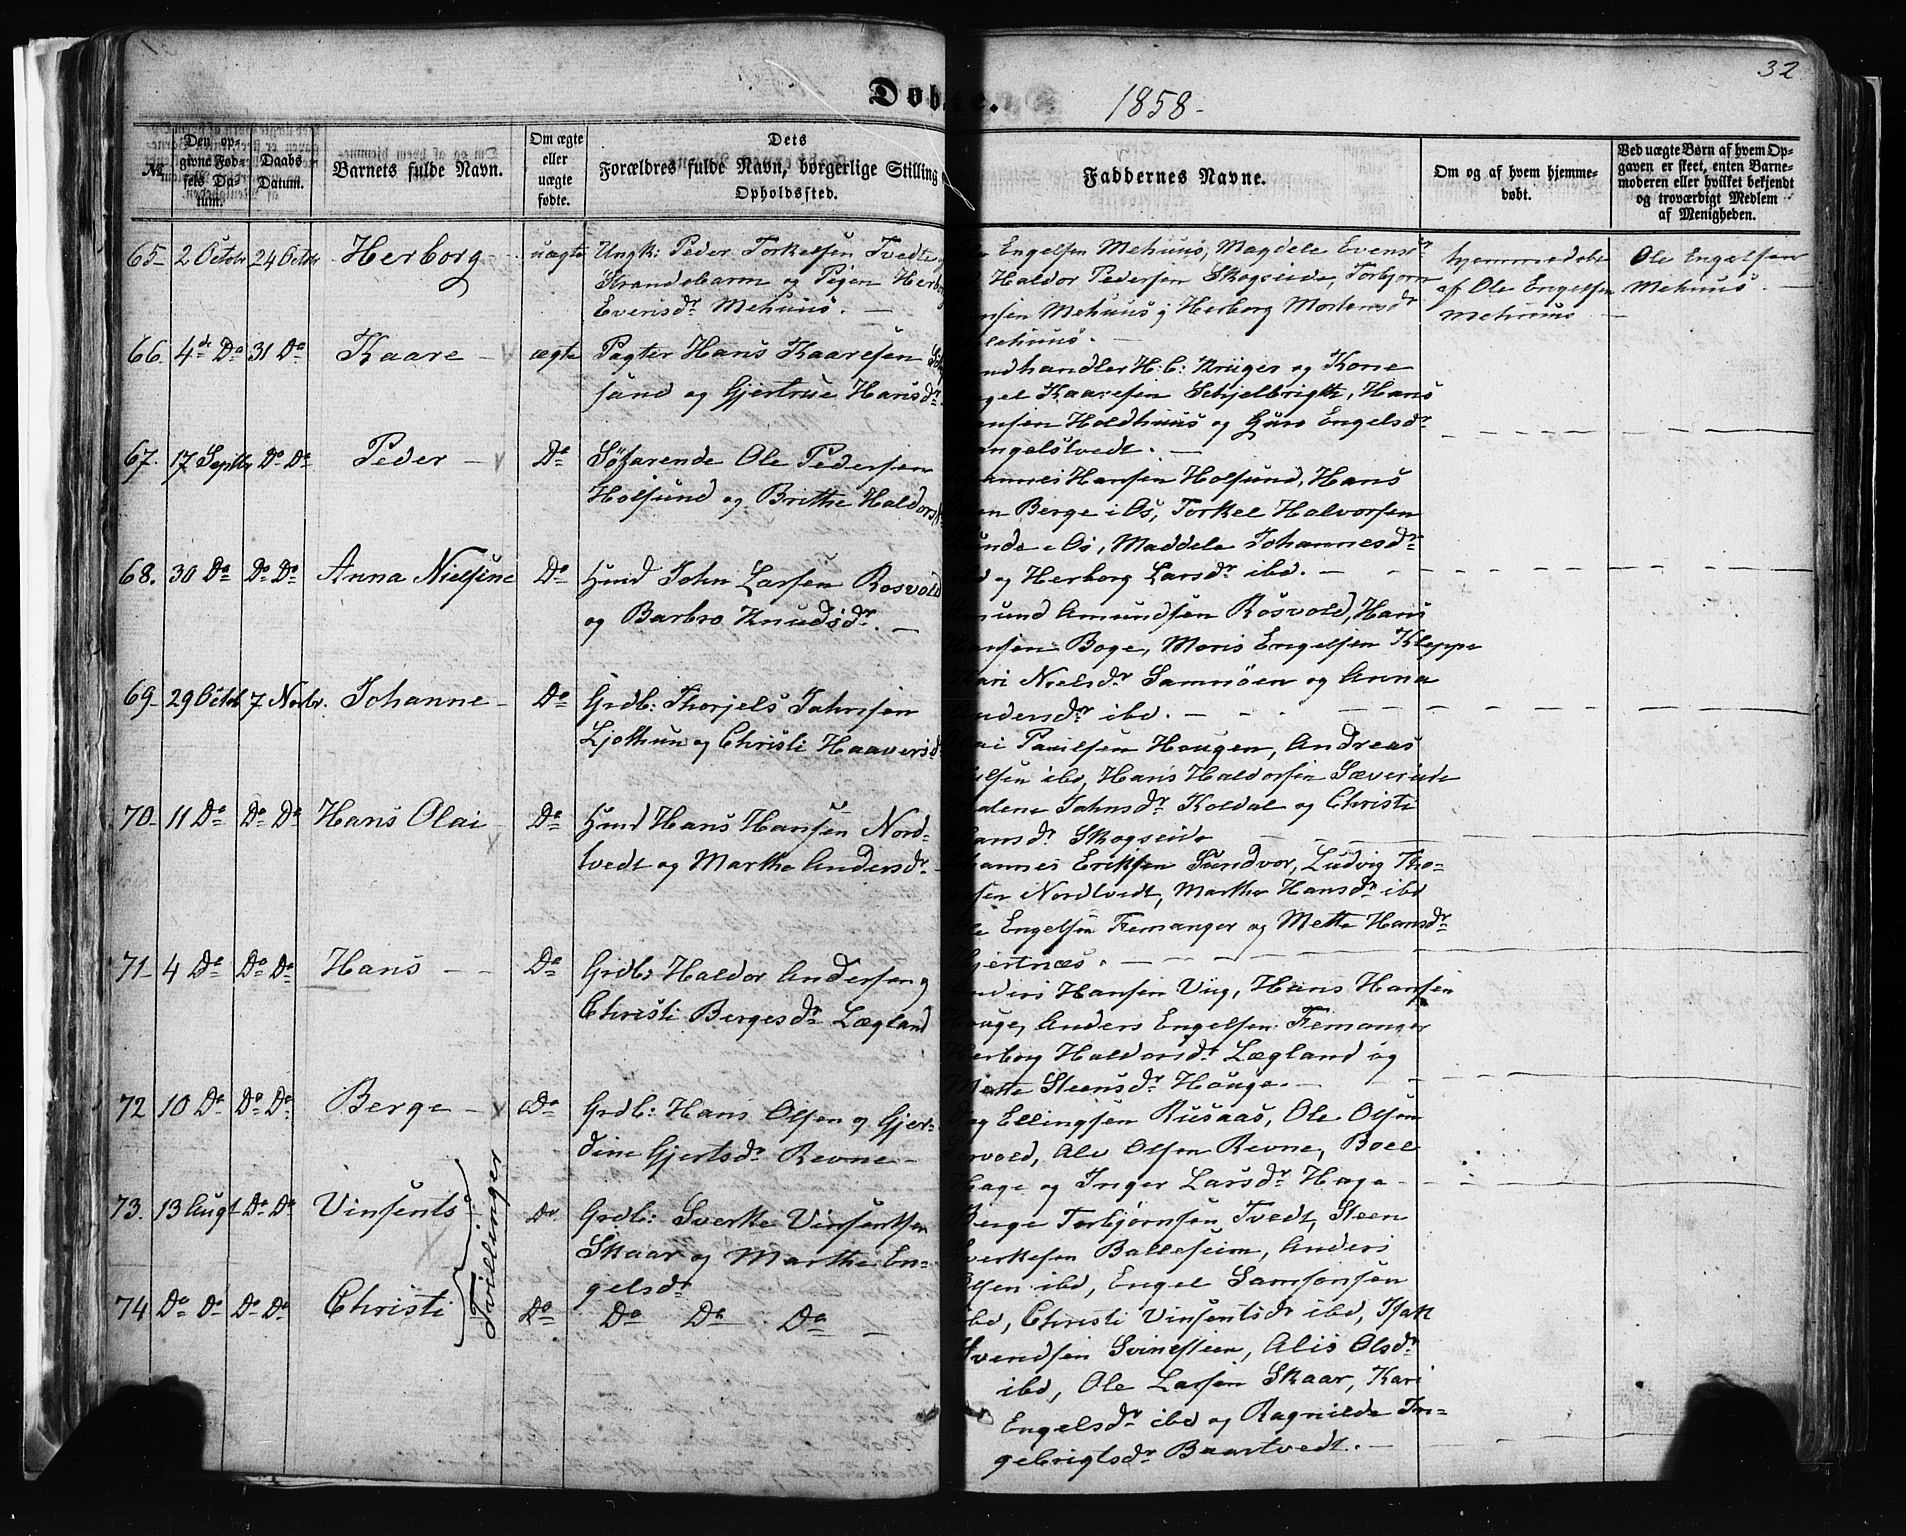 32
Døbte. 1858-
No.
Den op-
givne Fød-
sels Da-
tum.
Daabs
Datum.
Barnets fulde Navn.
Om ægte
eller
uægte
fødte.
Dets
Forældres fulde Navn, borgerlige Stilling
Opholdssted.
Faddernes Navne.
Om og af hvem hjemme-
døbt.
Ved uægte Børn af hvem Op-
gaven er skeet, enten Barne-
moderen eller hvilket bekjendt
og troværdigt Medlem
af Menigheden.
65- 2 Octobr 24 Octbr Herborg - uægte Ungk: Peder Torkelsen Tvedte
Strandebarm og Pigen Herborg
Evensdr Mehuus. -
Engelsen Mehuus, Magdele Evensdr
Haldor Pedersen Skogseide, Torbjørn
nsen Mehuus, Herborg Mortensdr
ehuus. -
hjemmedøbt
af Ole Engelsen
Mehuus -
Ole Engelsen
Mehuus. -
66. 4de Do 31 Do Kaare - ægte Pagter Hans Kaaresen
sund og Gjertrue Hansdr
ndhandler H. C: Krüger og Kone
gel Kaaresen Schjelbrigth, Hans
nsen Holdhuus og Guro Engelsdr
angelstvedt. -
67. 17 Septbr Do Do Peder - Do Søfarende Ole Pedersen
Holsund og Brithe Haldorsdr
annes Hansen Holsund, Hans
en Berge i Os, Torkel Halvorsen
unde i Os, Maddele Johannesdr
og Herborg Larsdr ibd. -
68. 30 Do Do Do Anna Nielsine Do Hmd John Larsen Rosvold
og Barbro Knudsdr. -
mund Amundsen Rosvold, Hans
ansen Boge, Mons Engelsen Kleppe
Kari Nielsdr Samnøen og Anna
ndersdr ibd. -
69- 29 Octob 7 Novbr. Johanne - Do Grdb: Thorjels Johnsen
Ljothun og Christi Haaversdr
lai Paulsen Hougen, Andreas
lsen ibd, Hans Haldorsen Sæverude
alene Johnsdr Koldal og Christi
ansdr Skogseide
70- 11 Do Do Do Hans Olai - Do Hmd Hans Hansen Nord-
tvedt og Marthe Andersdr -
hannes Eriksen Sundvor, Ludvig Tho-
sen Nordtvedt, Marthe Hansdr ibd
le Engelsen Femanger og Mette Hansdr
Gjertnæs. -
71- 4 Do Do Do Hans - - Do Grdb: Haldor Andersen og
Christi Bergesdr Lægland
Anders Hansen Viig, Hans Hansen
Houge, Anders Engelsen Femanger
Herborg Haldorsdr Lægland og
Mette Steensdr Houge. -
72 10 Do Do Do Berge - Do Grdb: Hans Olsen og Gjer-
dine Gjertsdr Revne -
Dag Ellingsen Rusaas, Ole Olsen
ervold, Ole Olsen Revne, Boel
Hage og Inger Larsdr Hage -
73. 13 Augt Do Do Vinsents Do Grdb: Sverke Vinsentsen
Skaar og Marthe En-
gelsdr
Tvillinger
Berge Torbjørnsen Tvedt, Steen
Sverkesen Balleseim, Anders
Olsen ibd, Engel Samsonsen
74 Do Do Do Do Christi Do Do Do Do -
ibd, Christi Vinsentsdr ibd, Isak
Svendsen Svinesteen, Alis Olsdr
ibd, Ole Larsen Skaar, Kari
Engelsdr ibd og Ragnilde In-
gebrigtsdr Baartvedt. -